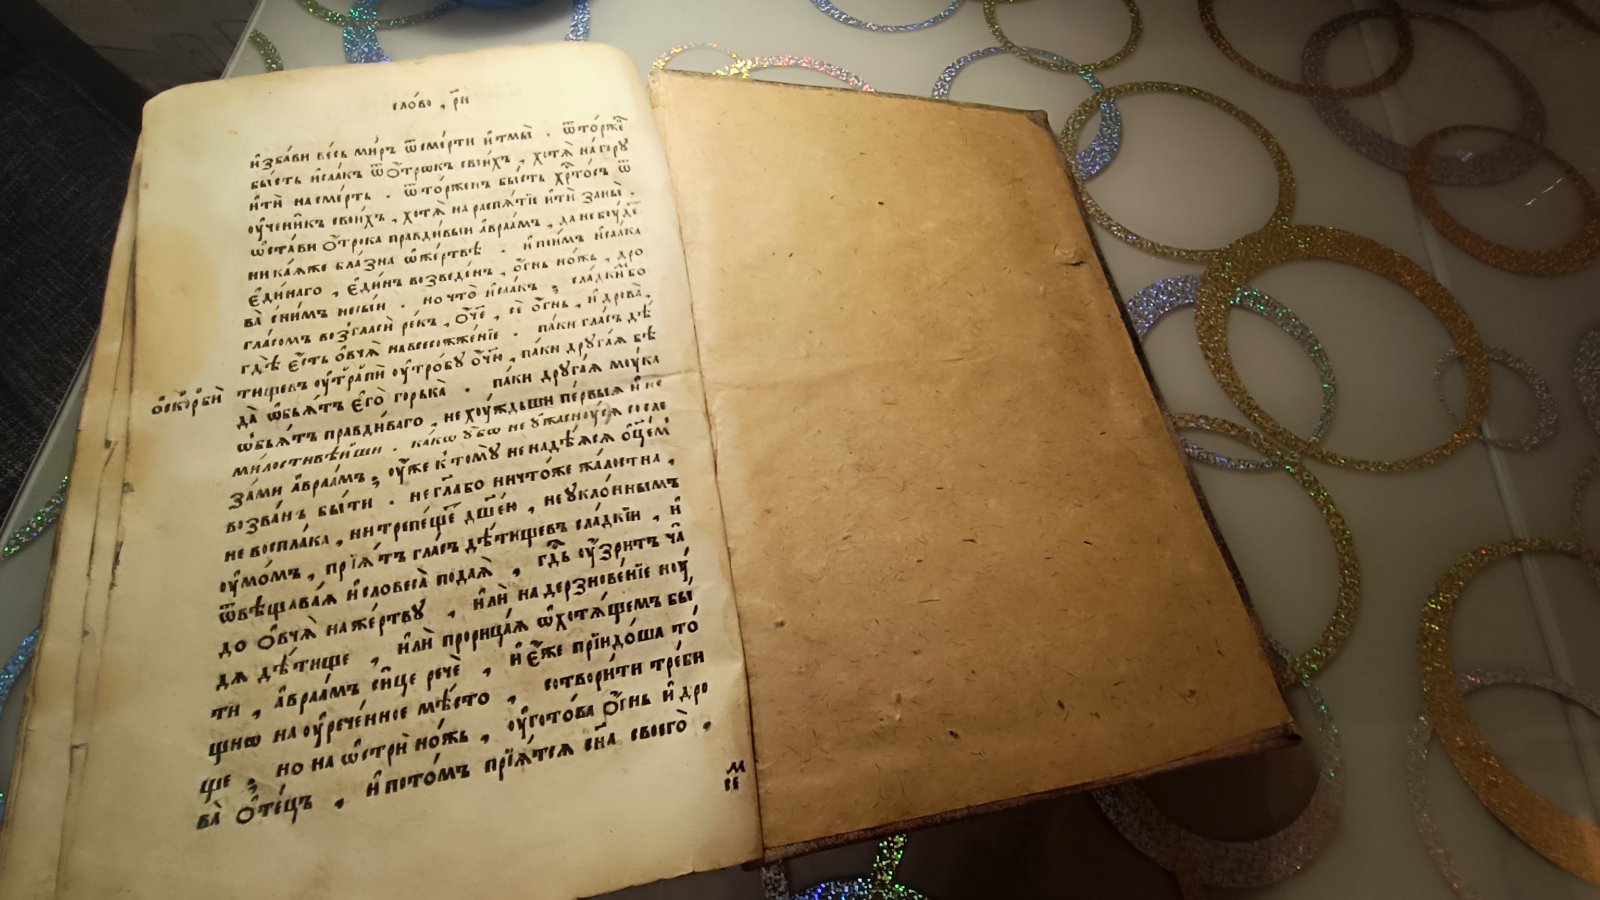 сло́во , р҃и
и҆зба́ви ве́сь ми́ръ ѿсме́рти и҆тмы̀ . ѿто́рже
бы́сть и҆саа́къ ѿѻ҆трѡкъ свои́хъ , хотѧ̀ на́гору
и҆тѝ насме́рть . ѿто́рженъ бы́сть хр҇то́съ ѿ
оу҆чени̑къ свои́хъ , хотѧ̀ на распѧ́тїе и҆тѝ заны̀ .
ѡ҆ста́ви ѻ҆́трока пра́вдивыи а҆враа́мъ , да не бꙋ́де
ника́ѧже бла́зна ѡ҆же́ртвѣ . и҆ пои́мъ и҆саа́ка
є҆ди́наго , є҆ди́нъ возведе́нъ , ѻ҆́гнь но́жь , дро
ва̀ сни́мъ несы́и . но что̀ и҆саа́къ ; сла́дкимъ бо
гла́сомъ возгласѝ ре́къ , ѻ҆́ч҃е , сѐ ѻ҆́гнь , и҆ дрова̀ .
гдѣ̀ є҆́сть ѻ҆вчѧ̀ навсесожже́нїе . па́ки гла́съ дѣ́
тищевъ оу҆трапѝ оу҆тро́бꙋ ѻ҆́ч҃ю , па́ки друга́ѧ бѣ
оскорбѝ
да̀ ѡ҆бьѧ́тъ є҆го̀ горька̀ . па́ки друга́ѧ мꙋ́ка
ѡ҆бьѧ́тъ пра́вдиваго , не хꙋ́ждьши пе́рвыѧ и҆ не
ми́лостивѣ́йши . ка́кѡ ᲂу҆́бѡ не оу҆жаснꙋ́сѧ сосле
за́ми а҆враа́мъ ; оу҆́же к томꙋ̀ не надѣ́ѧсѧ ѻ҆ц҃е́мъ
возва́нъ бы́ти . не гл҃а бо ничто́же жа́лостна ,
не воспла́ка , ни трепе́ще дш҃е́ю , не уклонным
оу҆мо́мъ , прїѧ́тъ гла́съ дѣ́тищевъ сла́дкїи , и҆
ѿвѣщава́ѧ и҆ словеса̀ подаѧ̀ , гд҇ь оу҆́зритъ ча
до ѻ҆вчѧ̀ наже́ртву , и҆лѝ на дерзнове́нїе ноу́
дѧ дѣ́тище , и҆лѝ прорица́ѧ ѡ҆хотѧ́щемъ бы́
ти , а҆враа́мъ си́це речѐ , и҆ є҆́же прїидо́ша то́
щнѡ на оу҆рече́нное мѣ́сто , сотвори́ти тре́би
ще ; но на ѡ҆стрѝ но́жь , оу҆гото́ва ѻ҆́гнь и҆ дро
ва̀ ѻ҆те́цъ , и҆ пото́мъ прїѧ́тсѧ сн҃а своего̀ ,
м
се